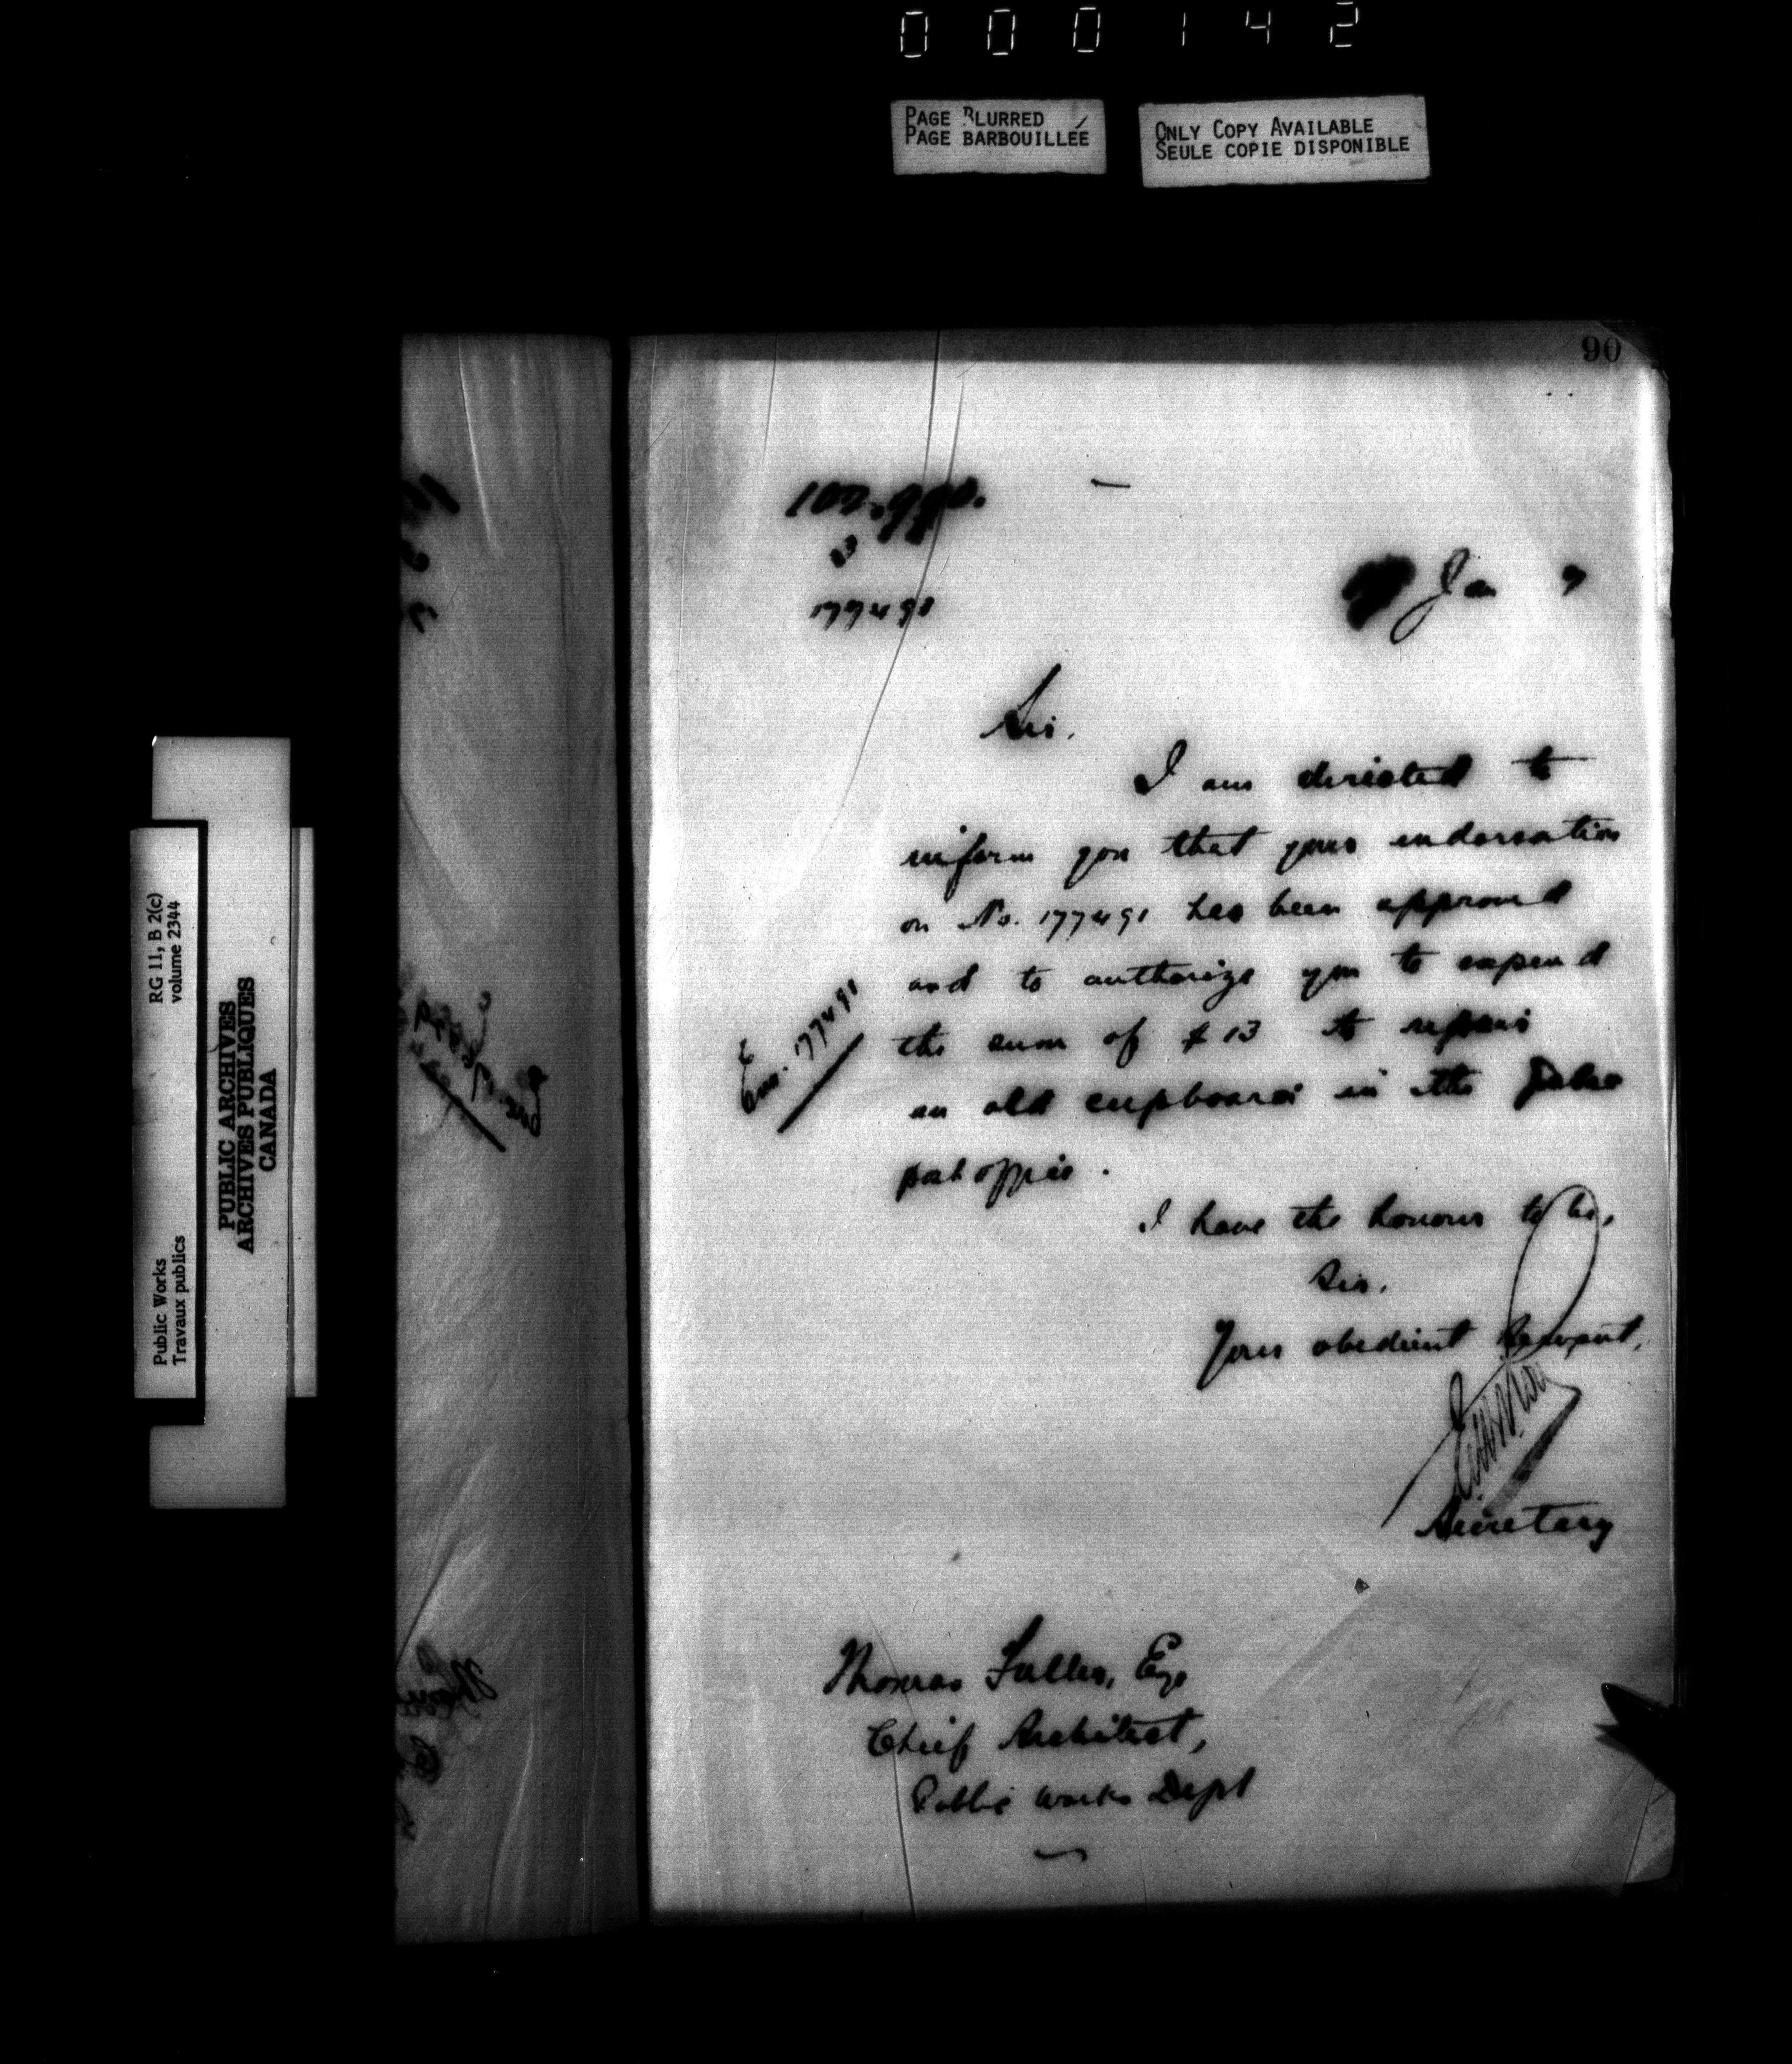 000142
PAGE BLURRED
PAGE BARBOUILLÉE
ONLY COPY AVAILABLE
SEULE COPIE DISPONIBLE
RG 11, B 2(c)
volume 2344
Public Works
Travaux publics
PUBLIC ARCHIVES
ARCHIVES PUBLIQUES
CANADA
90
177491
Jan 7
Sir.
I am directed to
inform you that your endorsation
on No. 177491 has been approved
and to authorize you to expend
the sum of $13 to repair
an old cupboard in the
post office.
Enc. 177491
I have the honour to be,
Sir.
Your obedient Servant,
Secretary
Thomas Fuller, Esq
Chief Architect,
Public Works Dept